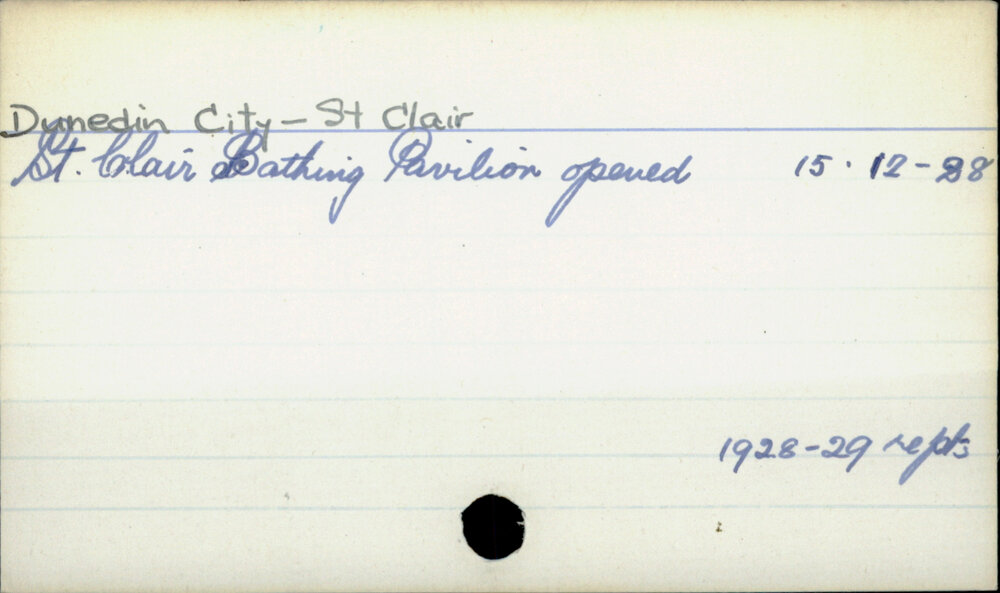 Dunedin City - St Clair
St. Clair Bathing Pavilion opened 15. 12-28
1928-29 repts